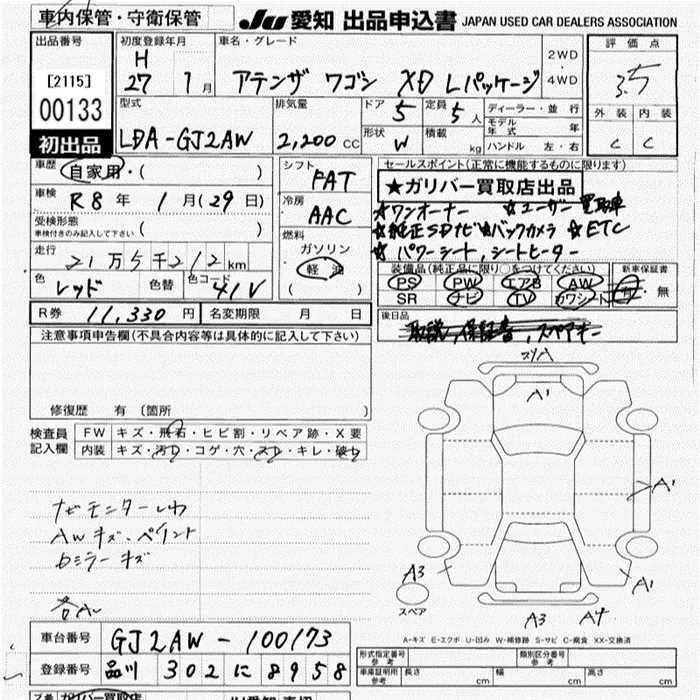 車内保管・守衛保管
JU 愛知 出品申込書 JAPAN USED CAR DEALERS ASSOCIATION
出品番号
[2115]
00133
初出品
初度登録年月
H 27 1月
車名・グレード
アテンザ ワゴン XD Lパッケージ
2WD
4WD
評価点
3.5
外装 内装
C C
型式
LDA-GJ2AW
排気量
2,200 CC
ドア 5
定員 5人
形状 W
積載 kg
ディーラー・並行
モデル年式 年
ハンドル 左・右
車歴
自家用・( )
車検
R8年 1月(29日)
受検形態
車検付きのみ記入して下さい ( )
走行
21万5千212km
色 レッド 色替 色コード 41V
シフト
FAT
冷房
AAC
燃料
ガソリン
軽油
( )
セールスポイント(正常に機能するものに限ります)
★ガリバー買取店出品
☆ワンオーナー ☆ユーザー買取車
☆純正SDナビ ☆バックカメラ ☆ETC
☆パワーシート,シートヒーター
装備品(純正品に限り○をつけてください)
PS PW エアB AW
SR ナビ TV カワシート
新車保証書
有・無
R券 11,330円
名変期限 月 日
後日品
取説,保証書,スペアキー
注意事項申告欄(不具合内容等は具体的に記入して下さい)
修復歴 有(箇所 )
検査員記入欄
FW キズ・飛石・ヒビ割・リペア跡・X要
内装 キズ・汚れ・コゲ・穴・スレ・キレ・破れ
ナビモニターしわ
AWキズ・ペイント
Dミラーキズ
各A
A1
A1
A1
A3
スペア
A3 A4
A-キズ E-エクボ U-凹み W-補修跡 S-サビ C-腐食 XX-交換済
車台番号 GJ2AW-100173
登録番号 品川 302 に 8958
形式指定番号 参考
類別区分番号 参考
車庫証明用 参考 長さ cm 幅 cm 高さ cm
ガリバー買取店